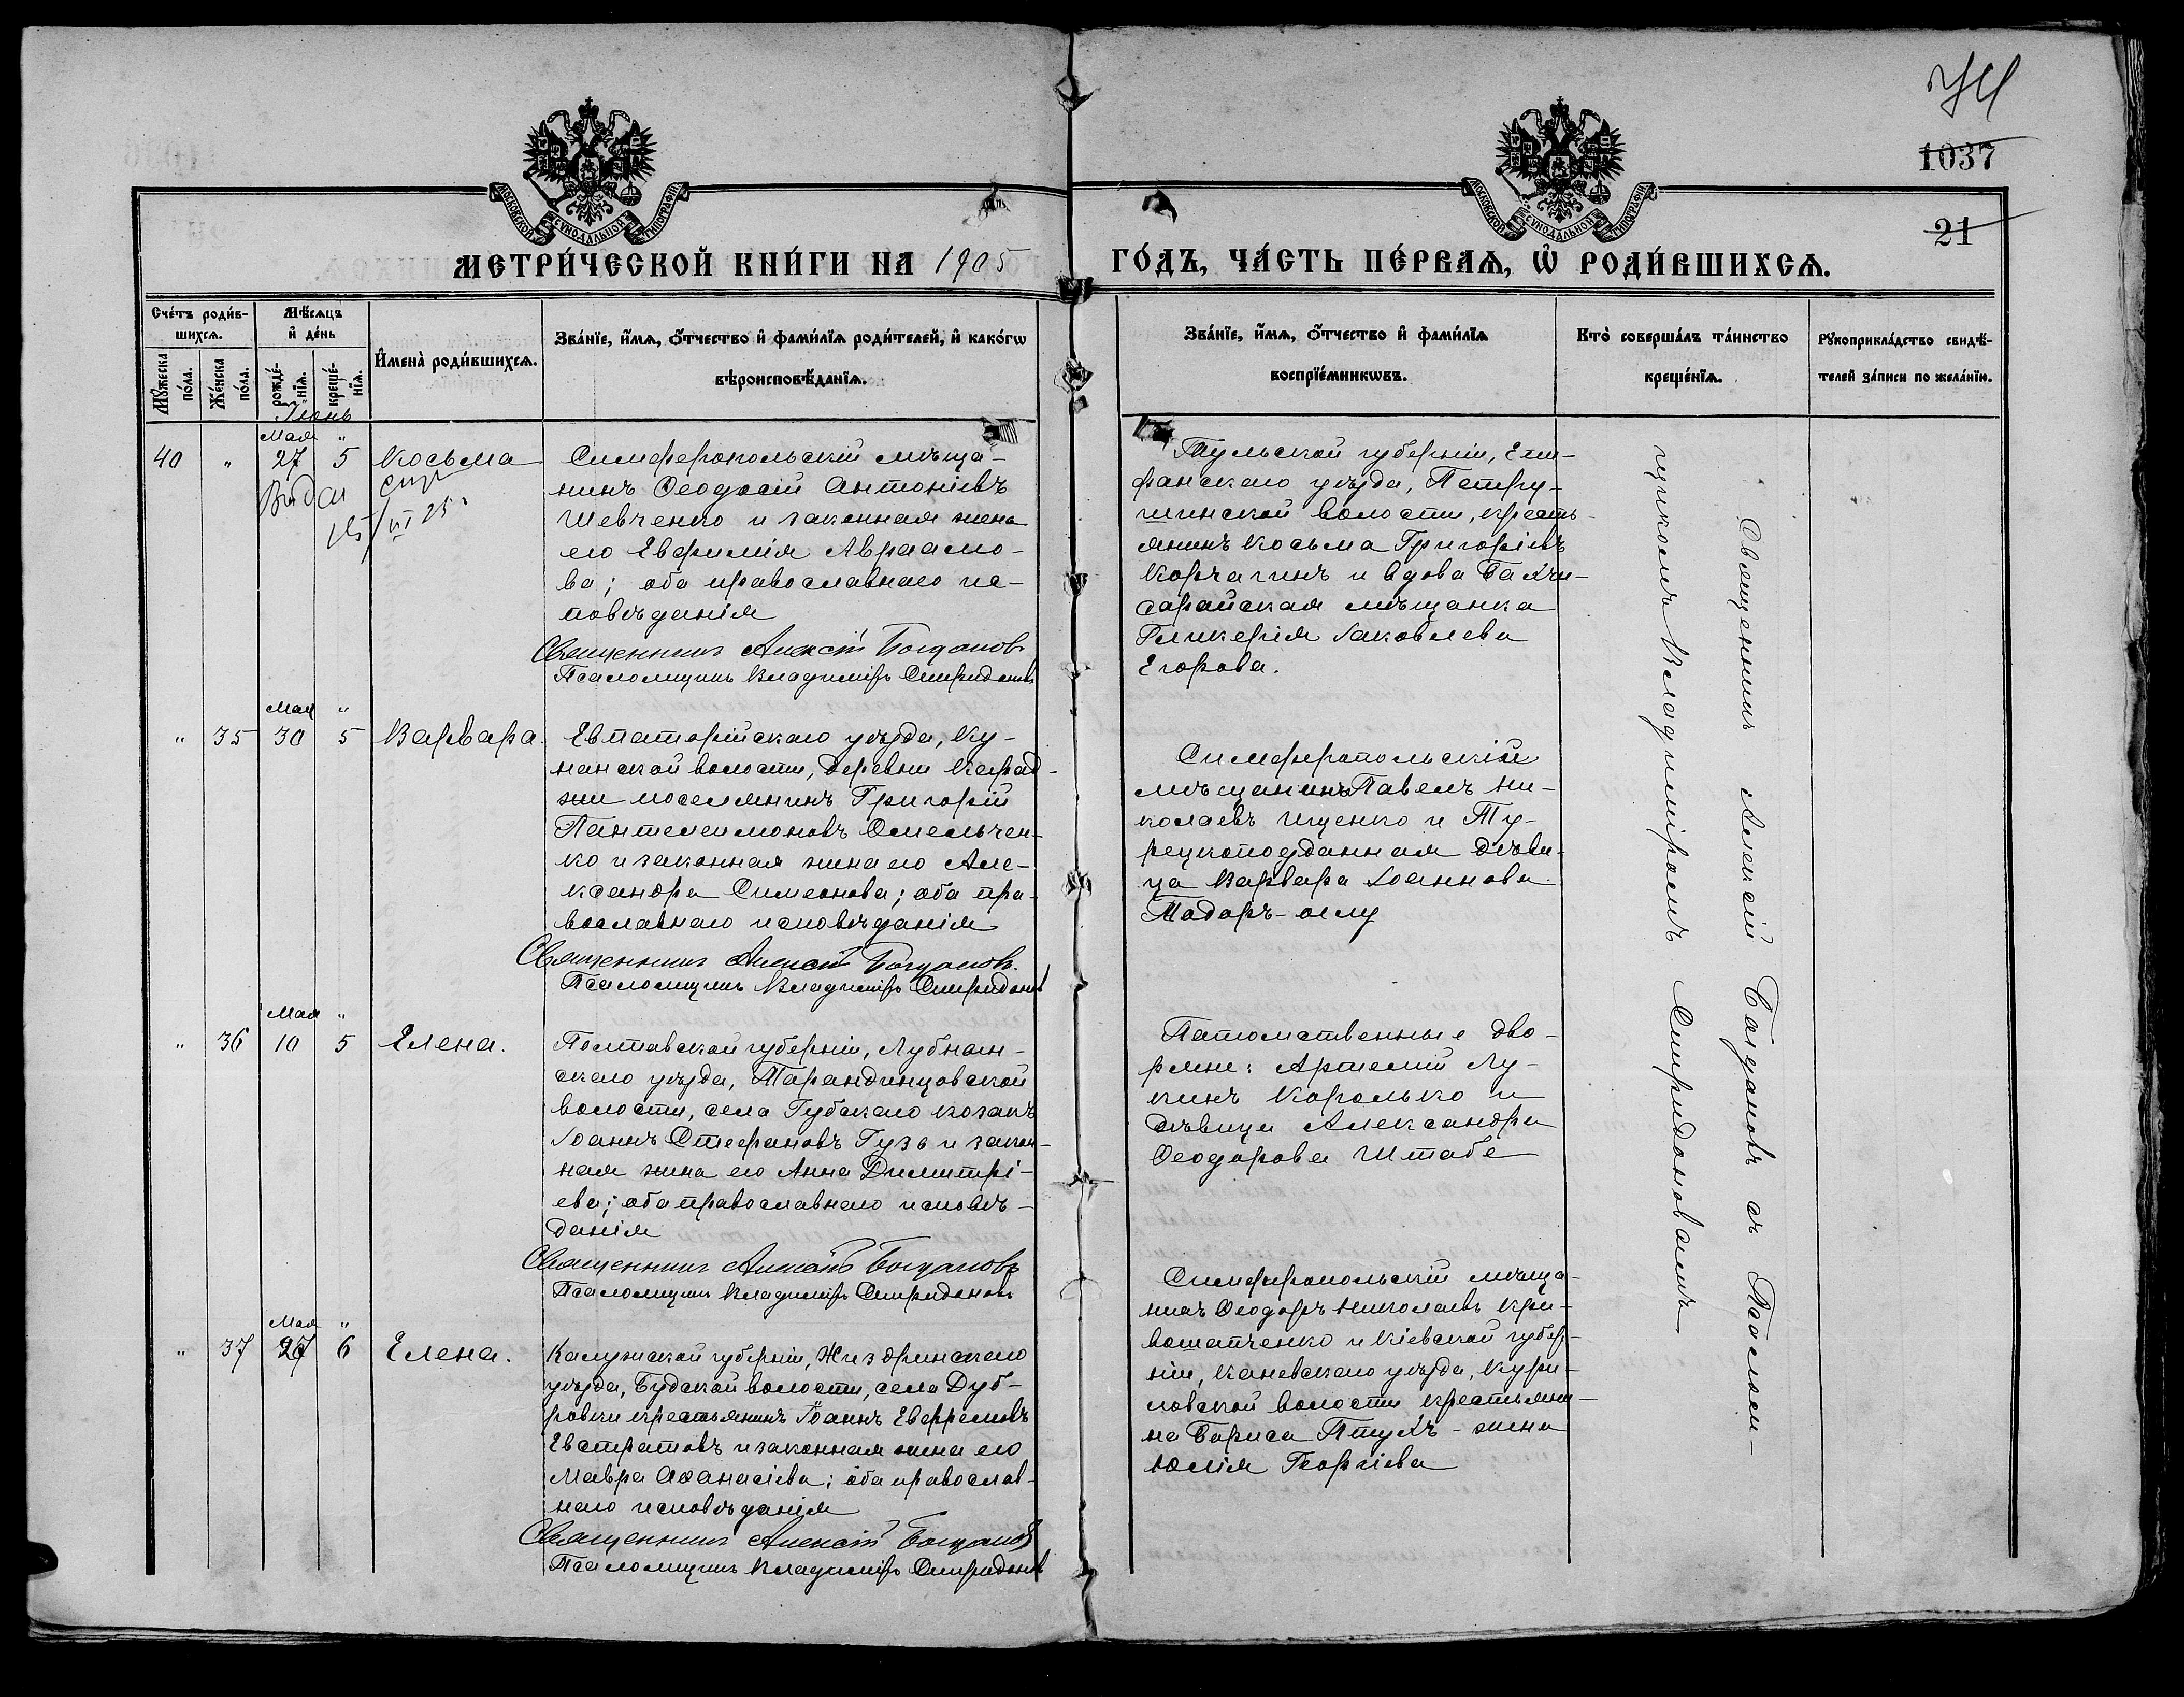 74
1037
21
МОСКОВСКОЙ СѴНОДАЛЬНОЙ ТИПОГРАФІИ
МОСКОВСКОЙ СѴНОДАЛЬНОЙ ТИПОГРАФІИ
МЕТРИ́ЧЕСКОЙ КНИ́ГИ НА 1905
ГО́ДЪ, ЧА́СТЬ ПЕ́РВАѦ, Ѡ҆ РОДИ́ВШИХСѦ.
Сче́тъ роди́в-
шихсѧ.
Мꙋ́жеска по́ла.
Же́нска по́ла.
Мѣ́сѧцъ
и҆ де́нь
рожде́-
нїѧ.
креще́-
нїѧ.
И҆мена̀ роди́вшихсѧ.
Зва́нїе, и҆́мѧ, ѻ҆́тчество и҆ фами́лїѧ роди́телей, и҆ како́гѡ
вѣроисповѣ́данїѧ.
Зва́нїе, и҆́мѧ, ѻ҆́тчество и҆ фами́лїѧ
воспрїе́мникѡвъ.
Кто̀ соверша́лъ та́инство
креще́нїѧ.
Рꙋкоприкла́дство свидѣ́-
телей за́писи по жела́нїю.
Іюнь
Мая "
40 " 27 5 Косьма
Симферопольскій мѣща-
нинъ Ѳеодосій Антоніевъ
Шевченко и законная жена
его Евфимія Авраамо-
ва; оба православнаго ис-
повѣданія
Священникъ Алексій Богдановъ
Псаломщикъ Владиміръ Спиридоновъ
Тульской губерніи, Епи-
фанскаго уѣзда, Петру-
шинской волости, кресть-
янинъ Косьма Григорьевъ
Корчагинъ и вдова Бахчи-
сарайская мѣщанка
Гликерія Іаковлева
Егорова.
Мая "
" 35 30 5 Варвара.
Евпаторійскаго уѣзда, Ку-
нанской волости, деревни Караd-
жи поселянинъ Григорій
Пантелеимоновъ Омельчен-
ко и законная жена его Але-
ксандра Симеонова; оба пра-
вославнаго исповѣданія
Священникъ Алексій Богдановъ.
Псаломщикъ Владиміръ Спиридоновъ
Симферопольскій
мѣщанинъ Павелъ Ни-
колаевъ Ищенко и Ту-
рецкоподданная дѣви-
ца Варвара Іоаннова
Тодоръ-оглу
Мая "
" 36 10 5 Елена.
Полтавской губерніи, Лубнан-
скаго уѣзда, Тарандинцовской
волости, села Губскаго козакъ
Іоаннъ Стефановъ Гузь и закон-
ная жена его Анна Димитрі-
ева; оба православнаго исповѣ-
данія
Священникъ Алексій Богдановъ
Псаломщикъ Владиміръ Спиридоновъ
Потомственные дво-
ряне: Артемій Лу-
кинъ Королько и
дѣвица Александра
Ѳеодорова Штабе
Мая "
" 37 6 Елена.
Калужской губерніи, Жиздринскаго
уѣзда, Будской волости, села Дуб-
ровки крестьянинъ Іоаннъ Евфремовъ
Евстратовъ и законная жена его
Мавра Аѳанасіева; оба православ-
наго исповѣданія
Священникъ Алексій Богдановъ
Псаломщикъ Владиміръ Спиридоновъ
Симферопольскій мѣща-
нинъ Ѳеодоръ Николаевъ Кри-
вошапченко и Кіевской губер-
ніи, Каневскаго уѣзда, Кури-
ловской волости крестьяни-
на Бориса Птухъ - жена
Юлія Георгіева
Священникъ Алексій Богдановъ съ Псалом-
щикомъ Владиміромъ Спиридоновымъ